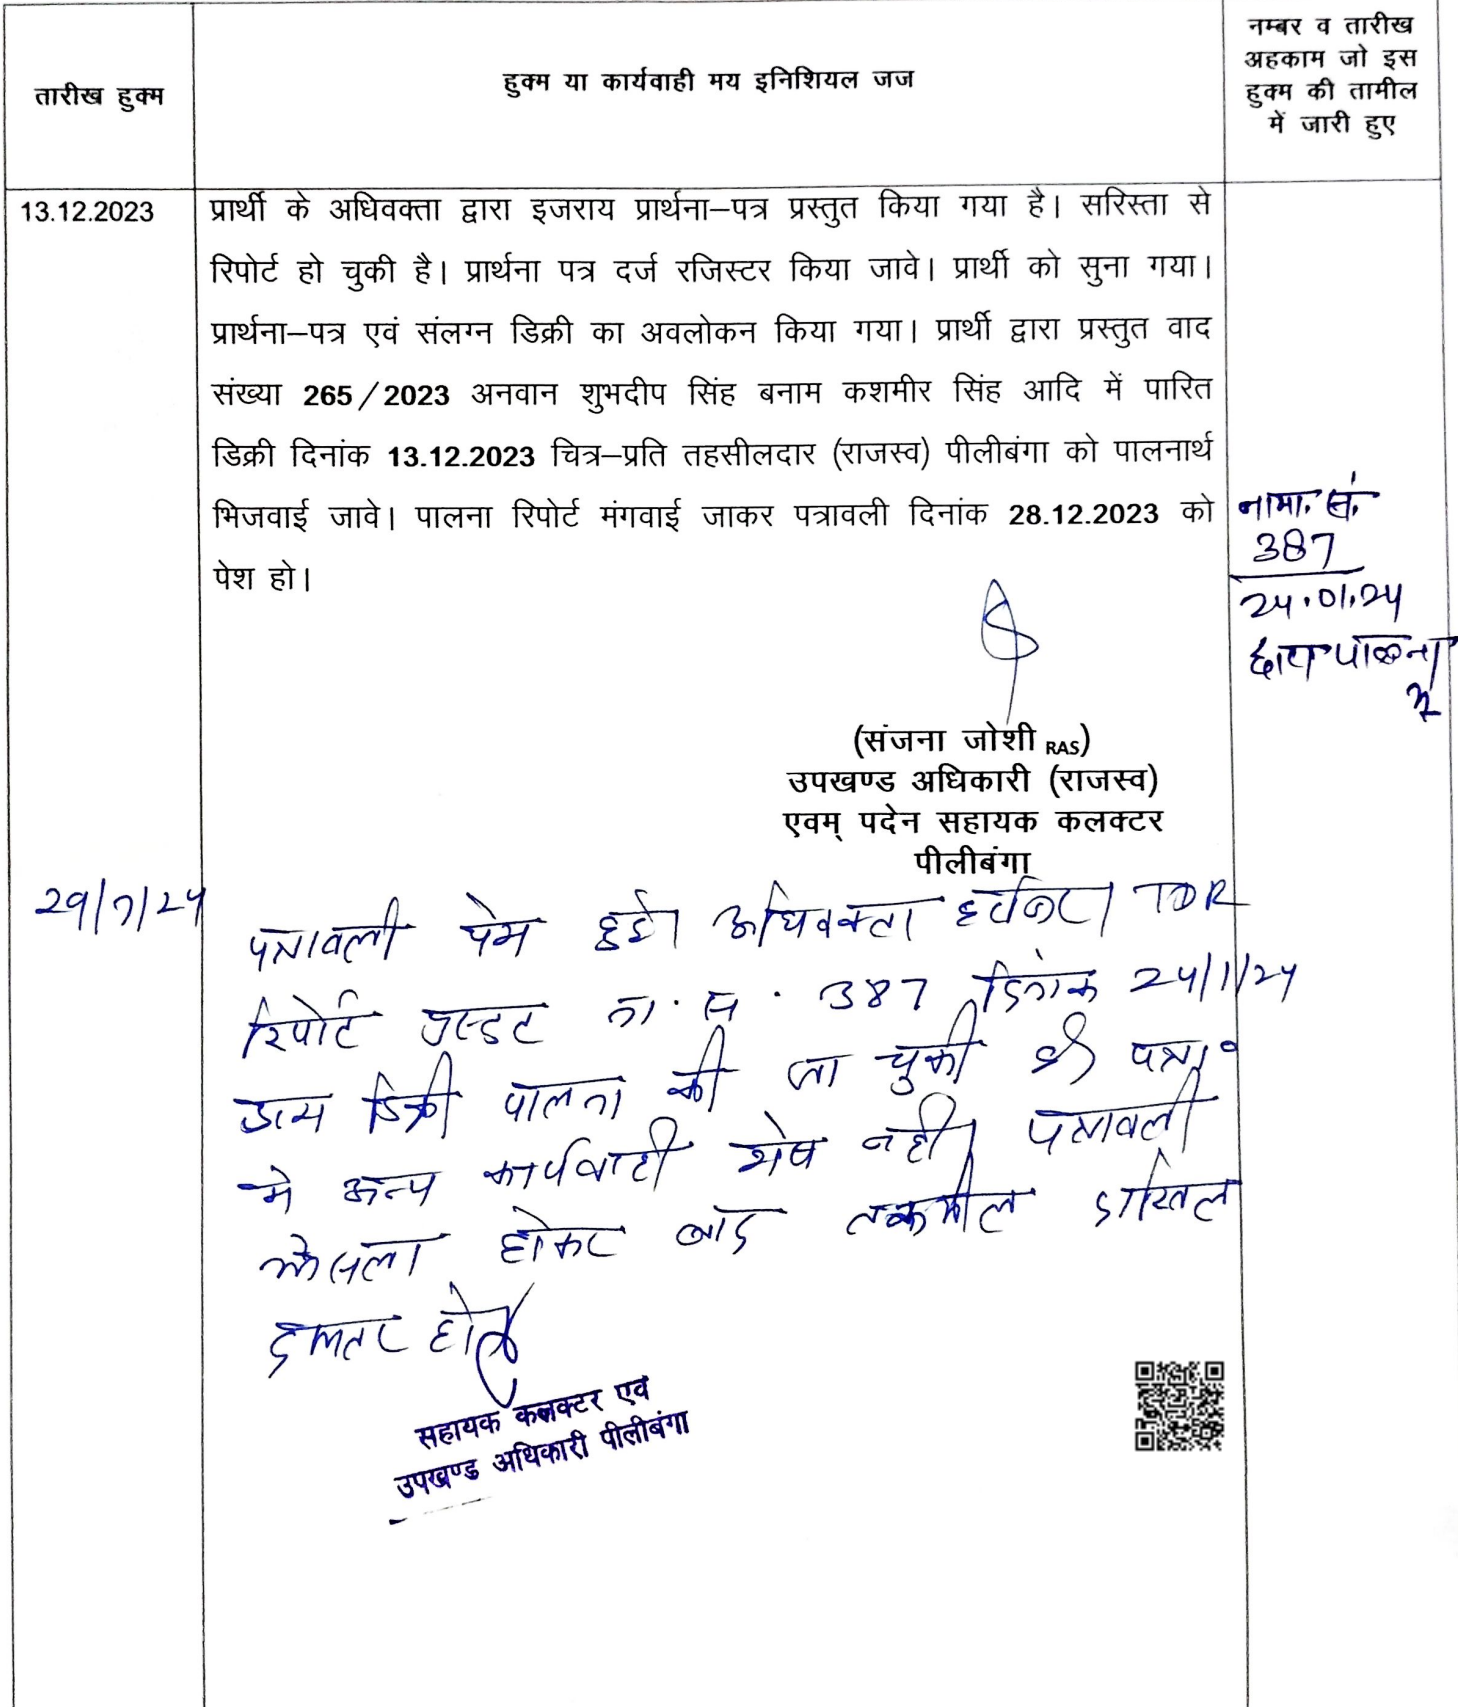 तारीख हुक्म
हुक्म या कार्यवाही मय इनिशियल जज
नम्बर व तारीख
अहकाम जो इस
हुक्म की तामील
में जारी हुए
13.12.2023
प्रार्थी के अधिवक्ता द्वारा इजराय प्रार्थना–पत्र प्रस्तुत किया गया है। सरिस्ता से
रिपोर्ट हो चुकी है। प्रार्थना पत्र दर्ज रजिस्टर किया जावे। प्रार्थी को सुना गया।
प्रार्थना–पत्र एवं संलग्न डिक्री का अवलोकन किया गया। प्रार्थी द्वारा प्रस्तुत वाद
संख्या 265/2023 अनवान शुभदीप सिंह बनाम कशमीर सिंह आदि में पारित
डिक्री दिनांक 13.12.2023 चित्र–प्रति तहसीलदार (राजस्व) पीलीबंगा को पालनार्थ
भिजवाई जावे। पालना रिपोर्ट मंगवाई जाकर पत्रावली दिनांक 28.12.2023 को
पेश हो।
नामा. सं.
387
24.01.24
द्वारा पालना
(संजना जोशी RAS)
उपखण्ड अधिकारी (राजस्व)
एवम् पदेन सहायक कलक्टर
पीलीबंगा
29/7/24
पत्रावली पेश हुई। अधिवक्ता TDR
रिपोर्ट ना. स. 387 दिनांक 24/1/24
द्वारा डिक्री पालना की जा चुकी है। पत्रा॰
मे अन्य कार्यवाही शेष नही। पत्रावली
फैसला होकर बाद तकमील दाखिल
दफ्तर हो।
सहायक कलक्टर एवं
उपखण्ड अधिकारी पीलीबंगा